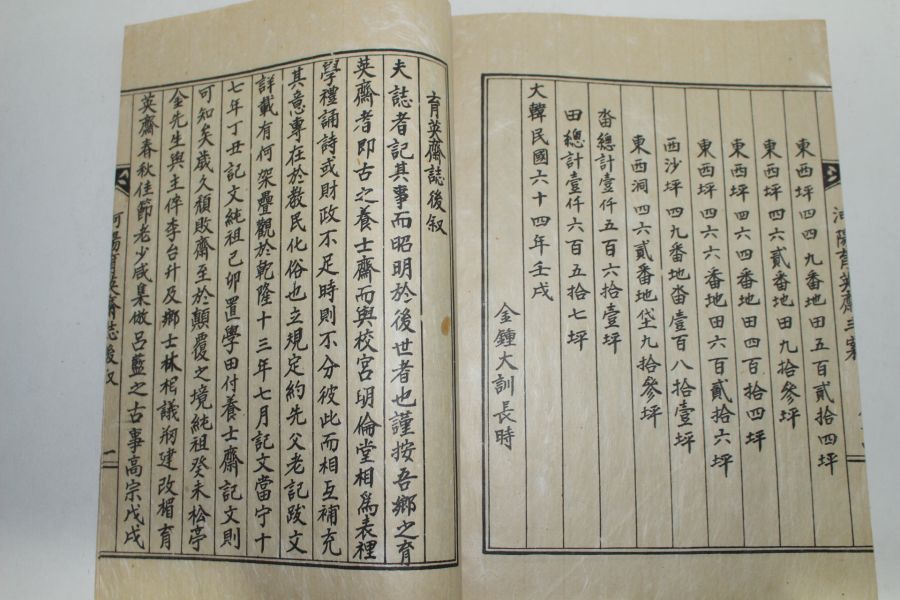 東西坪四四九番地田五百貳拾四坪
東西坪四六貳番地田九拾參坪
東西坪四六四番地田四百拾四坪
東西坪四六六番地田六百貳拾六坪
西沙坪四九番地畓壹百八拾壹坪
東西洞四六貳番地垈九拾參坪
畓總計壹仟五百六拾壹坪
田總計壹仟六百五拾七坪
大韓民國六十四年壬戌
金鍾大訓長時
育英齋誌後叙
夫誌者記其事而昭明於後世者也謹按吾鄉之育
英齋者即古之養士齋而與校宮明倫堂相爲表裡
學禮誦詩或財政不足時則不分彼此而相互補充
其意專在於教民化俗也立規定約先父老記跋文
詳載有何架疊觀於乾隆十三年七月記文當宁十
七年丁丑記文純祖己卯置學田付養士齋記文則
可知矣歲久頹敗齋至於顛覆之境純祖癸未松亭
金先生與主倅李台升及鄉士林相議刱建改楣育
英齋春秋佳節老少咸集倣呂藍之古事高宗戊戌
河陽育英齋誌後叙
一